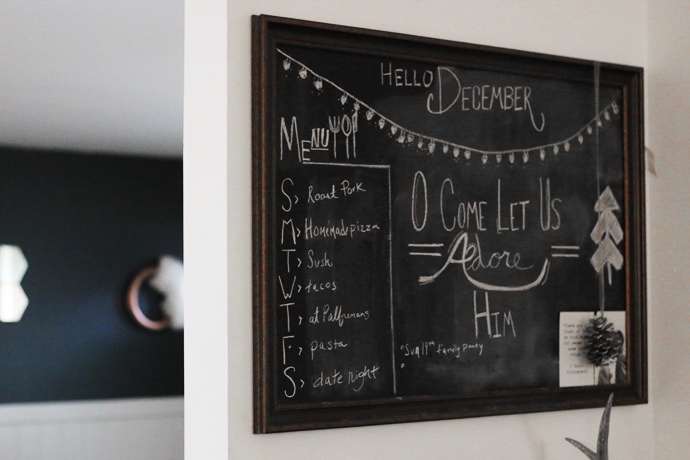 HELLO DECEMBER
MENU
S> Roast Pork
M> Homemade pizza
T> Sush
W> tacos
T> at
F> pasta
S> date night
O COME LET US
Adore
HIM
Sun 19th family